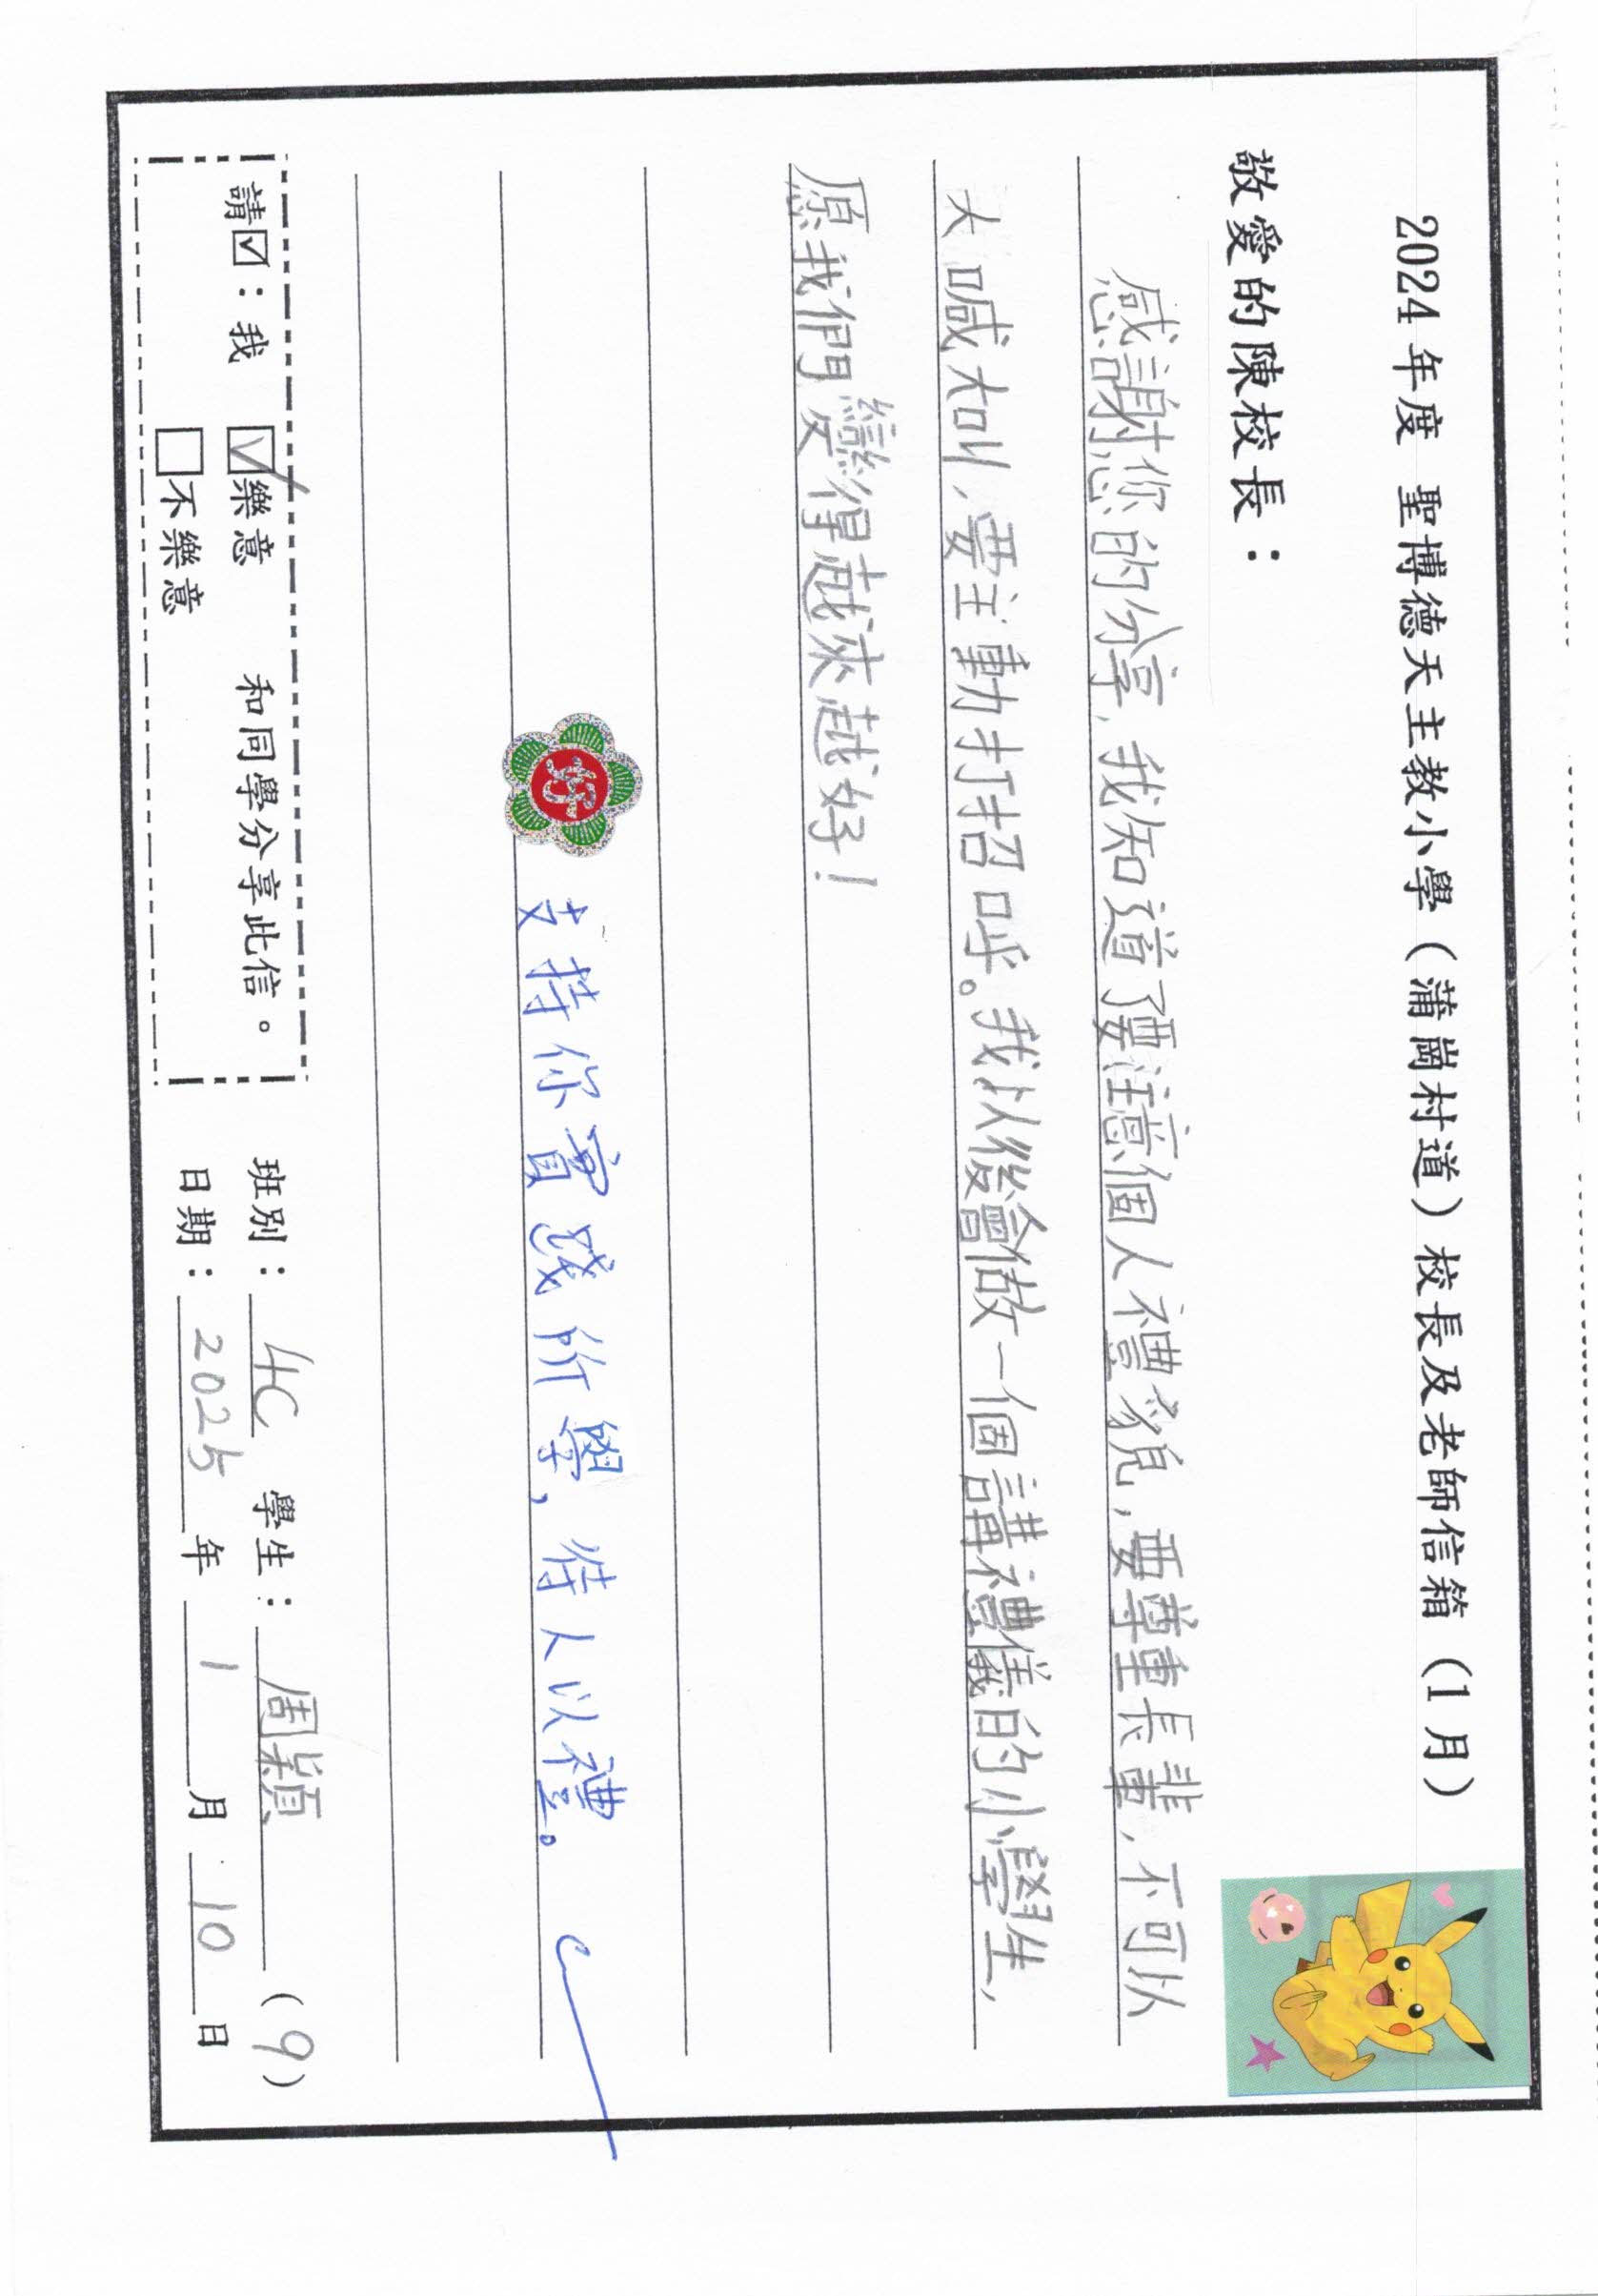 2024 年度 聖博德天主教小學（蒲崗村道）校長及老師信箱（1 月）
敬愛的陳校長：
感謝您的分享，我知道了要注意個人禮貌，要尊重長輩，不可以
大喊大叫，要主動打招呼。我以後會做一個講禮儀的小學生，
愿我們變得越來越好！
好
支持你實踐所學，待人以禮。
請☑：我 ☑樂意 和同學分享此信。
□不樂意
班別：4C 學生：周穎（9）
日期：2025 年 1 月 10 日